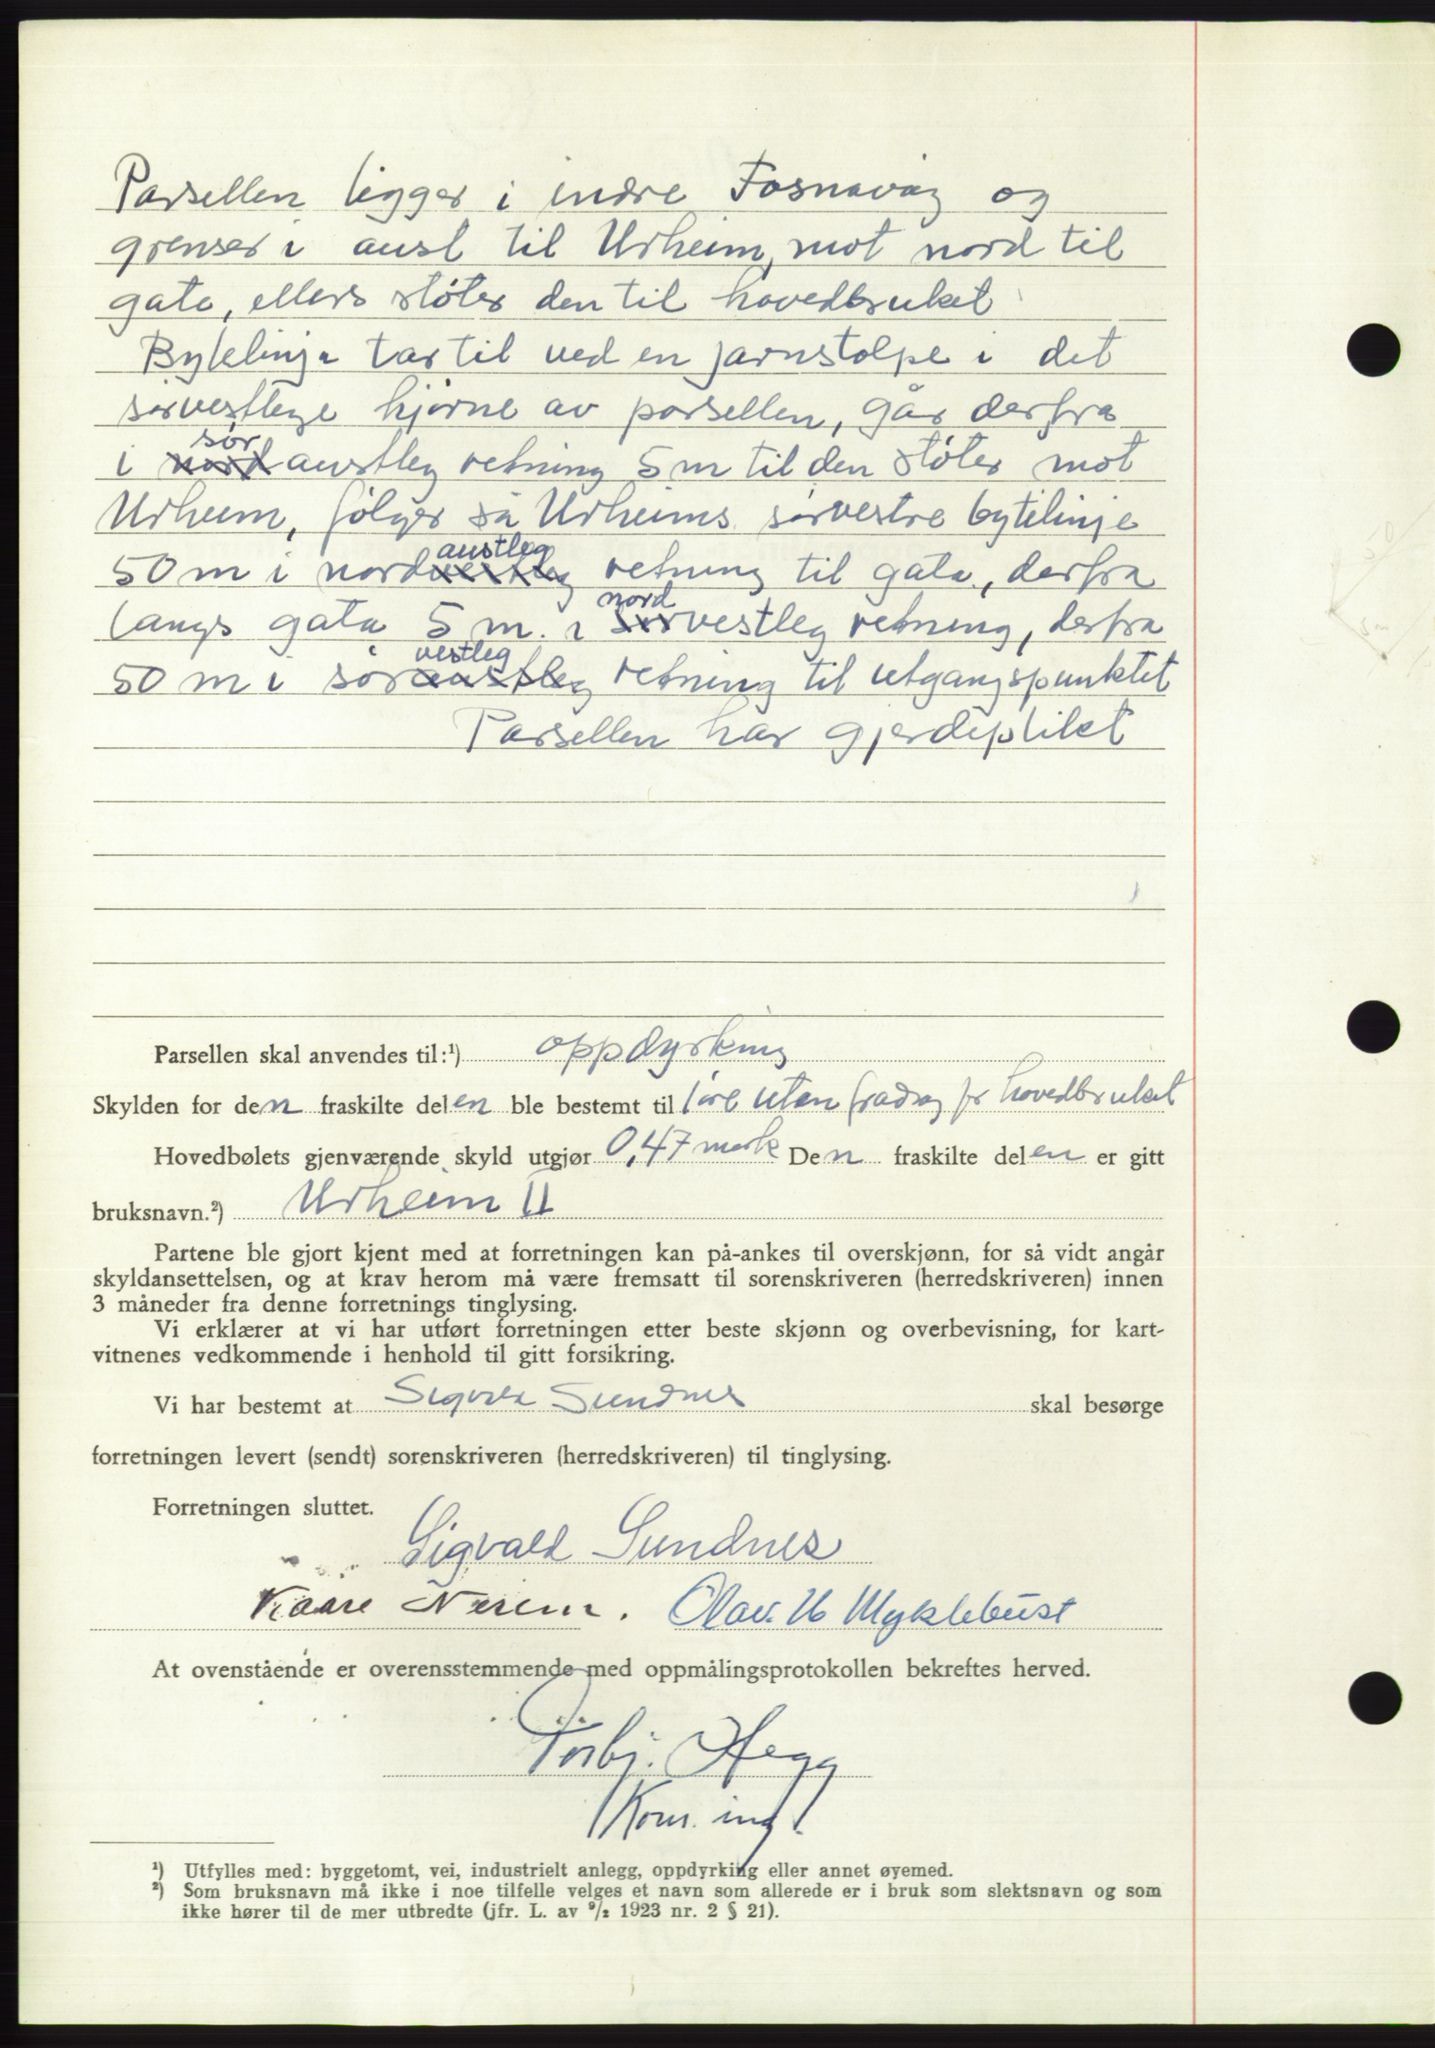 Parsellen ligger i indre Fosnavåg og
grenser i aust til Urheim, mot nord til
gata, ellers støter den til hovedbruket
Bytelinja tar til ved en jarnstolpe i det
sørvestlege hjørne av parsellen, går derfra
i nord sør austleg retning 5 m til den støter mot
Urheim, følger så Urheims sørvestre bytelinje
50 m i nordvestleg austleg retning til gata, derfra
langs gata 5 m. i sør nord vestleg retning, derfra
50 m i søraustleg vestleg retning til utgangspunktet
Parsellen har gjerdeplikt
Parsellen skal anvendes til:¹) oppdyrking
Skylden for den fraskilte delen ble bestemt til 1 øre uten fradrag for hovedbruket
Hovedbølets gjenværende skyld utgjør 0,47 mark Den fraskilte delen er gitt
bruksnavn.²) Urheim II
Partene ble gjort kjent med at forretningen kan på-ankes til overskjønn, for så vidt angår
skyldansettelsen, og at krav herom må være fremsatt til sorenskriveren (herredskriveren) innen
3 måneder fra denne forretnings tinglysing.
Vi erklærer at vi har utført forretningen etter beste skjønn og overbevisning, for kart-
vitnenes vedkommende i henhold til gitt forsikring.
Vi har bestemt at Sigvald Sundnes skal besørge
forretningen levert (sendt) sorenskriveren (herredskriveren) til tinglysing.
Forretningen sluttet.
Sigvald Sundnes
Kaare Nerem. Olav. U Myklebust
At ovenstående er overensstemmende med oppmålingsprotokollen bekreftes herved.
Torbj. Hegg
Kom. ing.
¹) Utfylles med: byggetomt, vei, industrielt anlegg, oppdyrking eller annet øyemed.
²) Som bruksnavn må ikke i noe tilfelle velges et navn som allerede er i bruk som slektsnavn og som
ikke hører til de mer utbredte (jfr. L. av 9/2 1923 nr. 2 § 21).